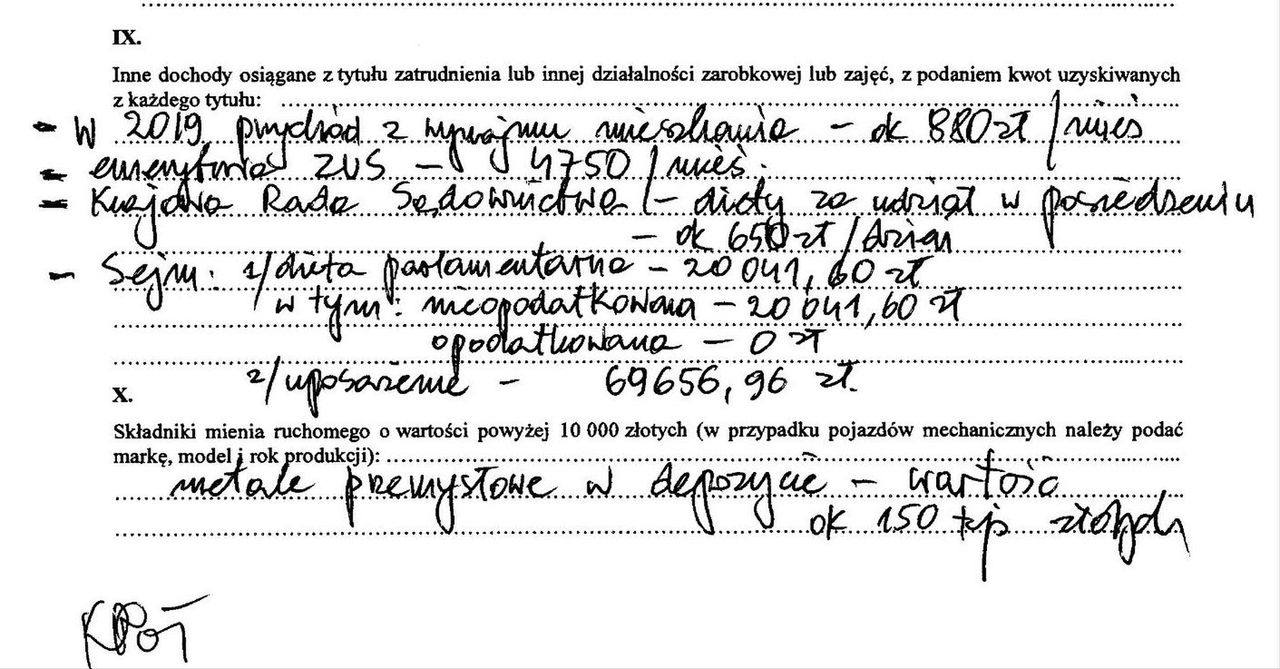 IX.
Inne dochody osiągane z tytułu zatrudnienia lub innej działalności zarobkowej lub zajęć, z podaniem kwot uzyskiwanych
z każdego tytułu:
- W 2019 przychód z wynajmu mieszkania - ok 880 zł / mies
- emerytura ZUS - 4750 / mieś.
- Krajowa Rada Sądownictwa - diety za udział w posiedzeniu
- ok 650 zł / dzień
- Sejm: 1/ dieta parlamentarna - 20 041,60 zł
w tym: nieopodatkowana - 20 041,60 zł
opodatkowana - 0 zł
2/ uposażenie - 69656,96 zł.
X.
Składniki mienia ruchomego o wartości powyżej 10 000 złotych (w przypadku pojazdów mechanicznych należy podać
markę, model i rok produkcji):
metale przemysłowe w depozycie - wartość
ok 150 tys złotych